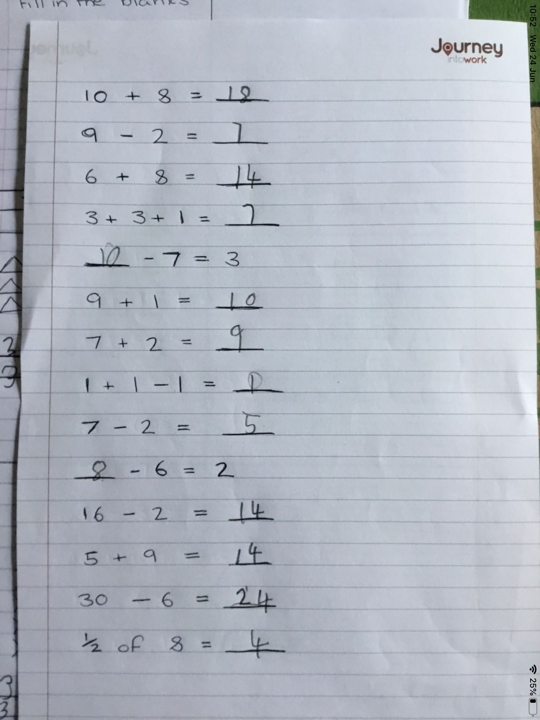 Fill in the blanks
Journey
intowork
10 + 8 = 18
9 - 2 = 7
6 + 8 = 14
3 + 3 + 1 = 7
10 - 7 = 3
9 + 1 = 10
7 + 2 = 9
1 + 1 - 1 =
7 - 2 = 5
8 - 6 = 2
16 - 2 = 14
5 + 9 = 14
30 - 6 = 24
½ of 8 = 4
10:52 Wed 24 Jun
25%
2
3
3
3